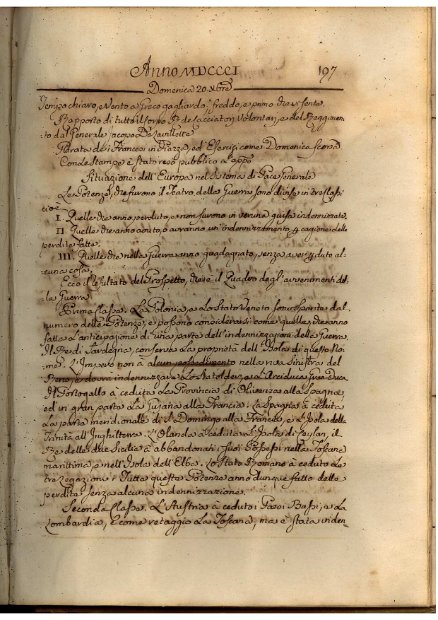 Anno MDCCCI 197
Domenica 20. Xbre
Tempo chiaro, Vento a Greco gagliardo, freddo, e primo
Rapporto di tutto il corpo de Cacciatori Volontari, e del Reggimento
dal Generale
Parata dei Francesi in Piazza, ed Esercizi come Domenica scorsa
Con le Stampe è stato reso pubblico
Situazione dell'Europa nel Sistema di Pace Generale
Le Potenze, che furono il Teatro della Guerra sono divise in tre classi
cioè
I. Quelle che anno perduto, e non furono in veruna guisa indennizzate.
II. Quelle che anno avuto, o avranno un'indennizzamento a cagione delle
perdite fatte.
III. Quelle che nella Guerra anno guadagnato, senza aver ceduto al-
cuna cosa.
Ecco il risultato del Prospetto, che è il Quadro degli avvenimenti del-
la Guerra.
Prima classe. La Polonia, e lo Stato Veneto sono sparite dal
numero delle Potenze, e possono considerarsi come quelle che anno
fatto l'anticipazione di una parte dell'indennizzazioni della Guerra.
Il Re di Sardegna, conserva la proprietà dell'Isola di questo No-
me. L'Impero non à nella riva sinistra del
Reno, e dovrà indennizzare lo Statolder, e l'Arciduca
Il Portogallo à ceduta la Provincia di Olivenza alla Spagna,
ed in gran parte la Gujana alla Francia. La Spagna à ceduta
la parte meridionale di S. Domingo alla Francia, e l'Isola della
Trinità all'Inghilterra. L'Olanda à ceduta l'Isola di Ceilan, il
Re delle due Sicilie à abbandonati i suoi Possessi nella Toscana
marittima e nell'Isola dell'Elba. Lo Stato Romano à ceduto le
tre Legazioni. Tutte queste Potenze anno dunque fatto delle
perdite senza alcuna indennizzazione.
Seconda Classe. L'Austria à ceduti i Paesi Bassi, e la
Lombardia, e come retaggio la Toscana, ma è stata inden-